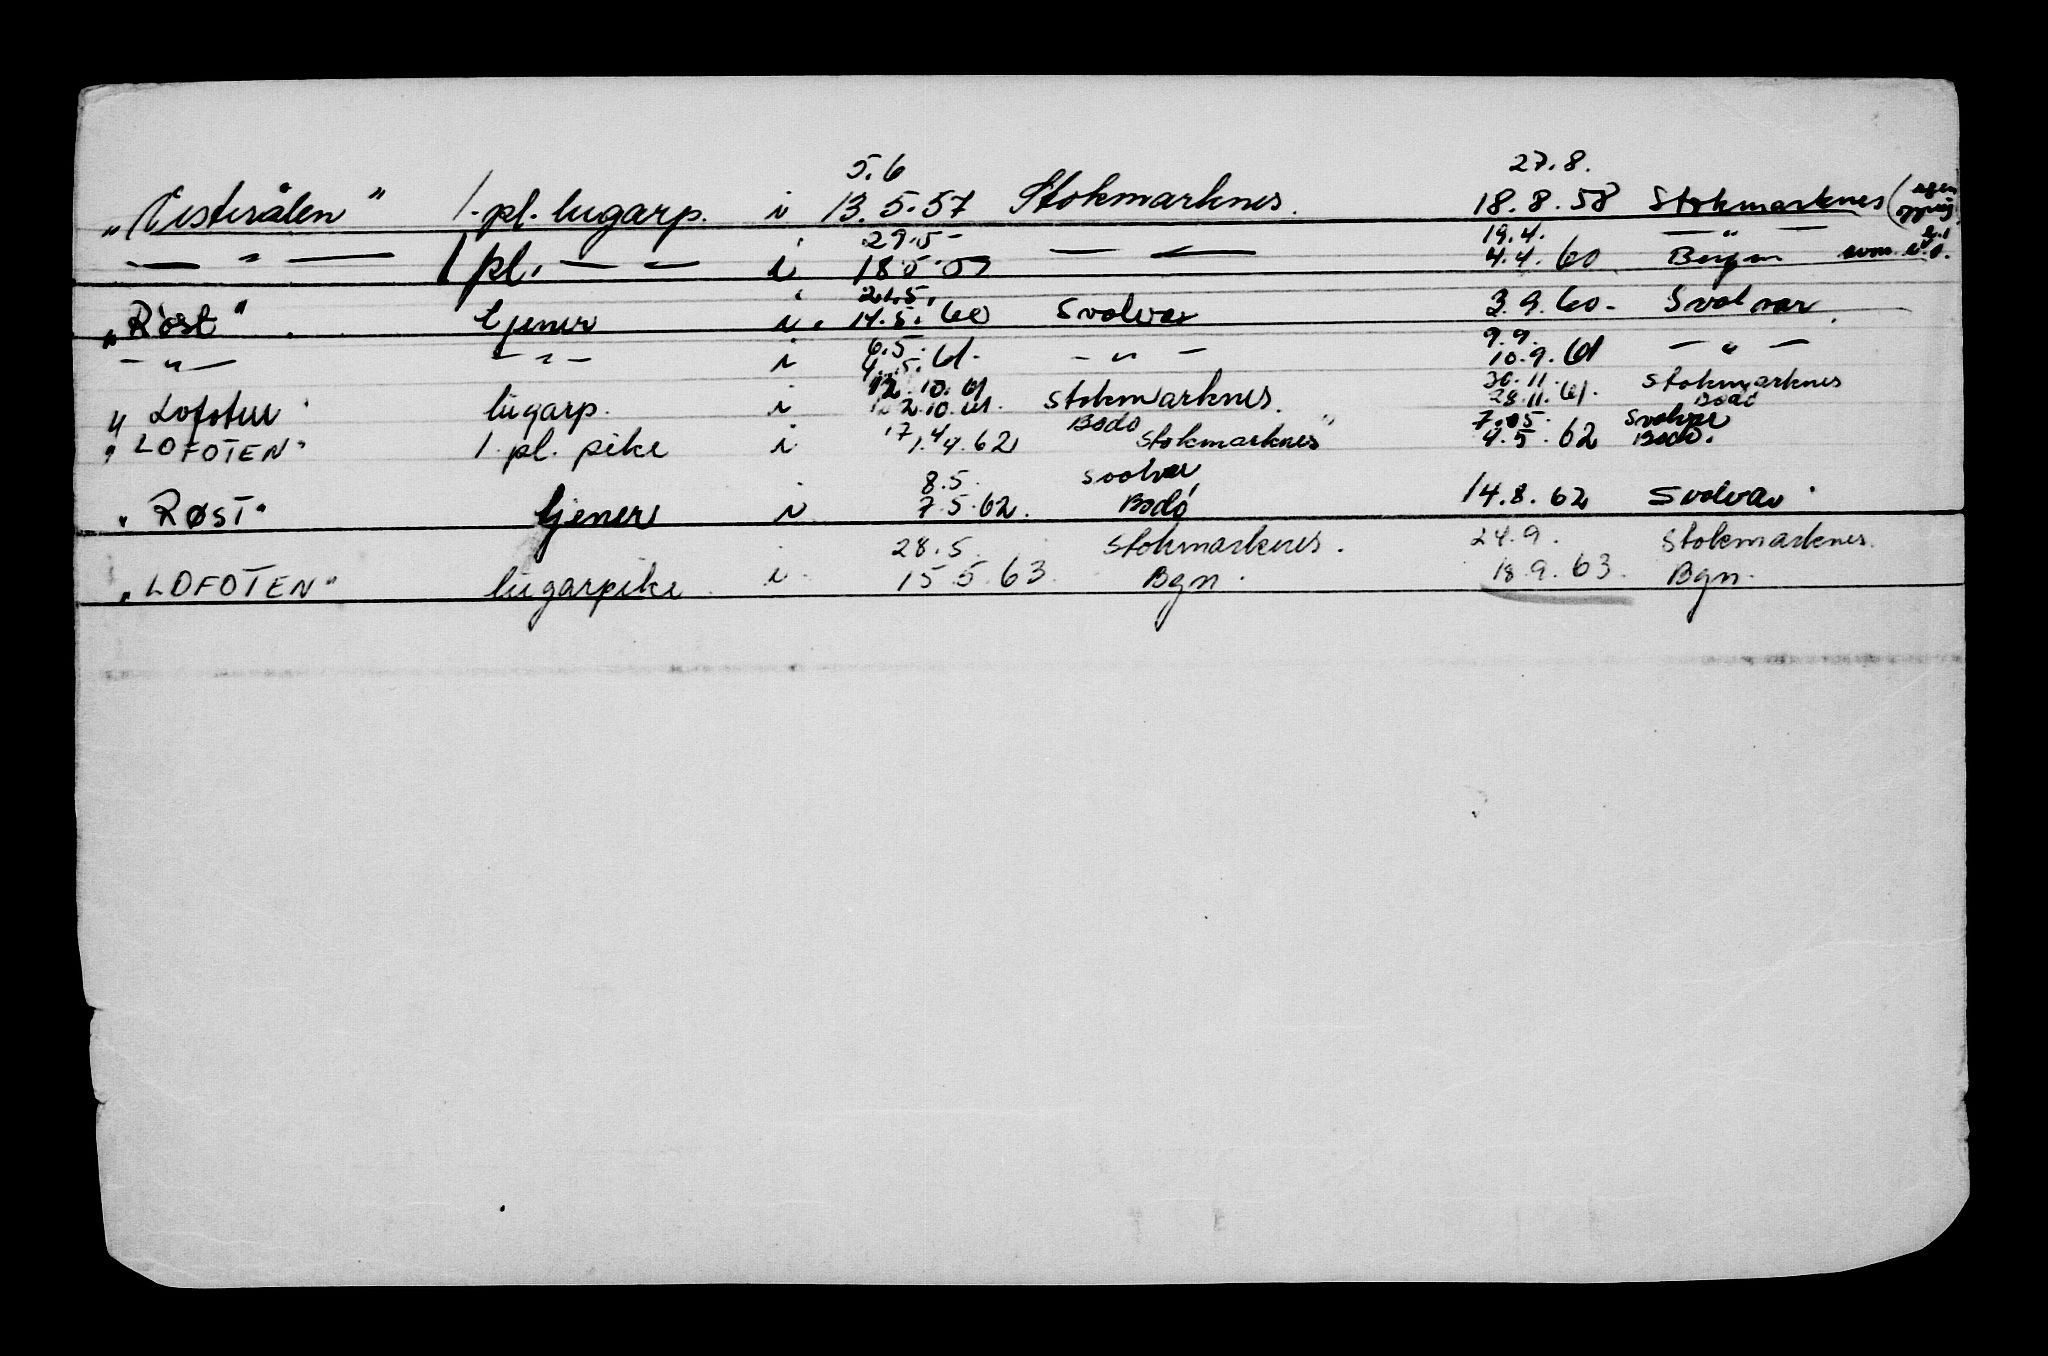 5.6 27.8.
„Vesterålen" 1. pl. lugarp. i 13.5.57 Stokmarknes. 18.8.58 Stokmarknes (egen
29.5 19.4. — " —
— " — 1 pl. — — i 18.5.59 — " — 4.4.60 Bergen
21.5.
„Røst" tjener i. 14.5.60 Svolvær 3.9.60 - Svolvær.
6.5. 9.9.
— " — — " — i 4.5.61. — " — 10.9.61 — " —
12.10.61 30.11. Stokmarknes
„Lofoten" lugarp. i 2.10.61. Stokmarknes. 28.11.61. Bodø
17.4 Bodø 7.05. Svolvær
„LOFOTEN" 1. pl. pike i 1.4.62 Stokmarknes" 4.5.62 Bodø.
8.5. Svolvær
„RØST" tjener i 7.5.62. Bodø 14.8.62 Svolvær
28.5. Stokmarknes. 24.9. Stokmarknes.
„LOFOTEN" lugarpike i 15.5.63. Bgn. 18.9.63. Bgn.